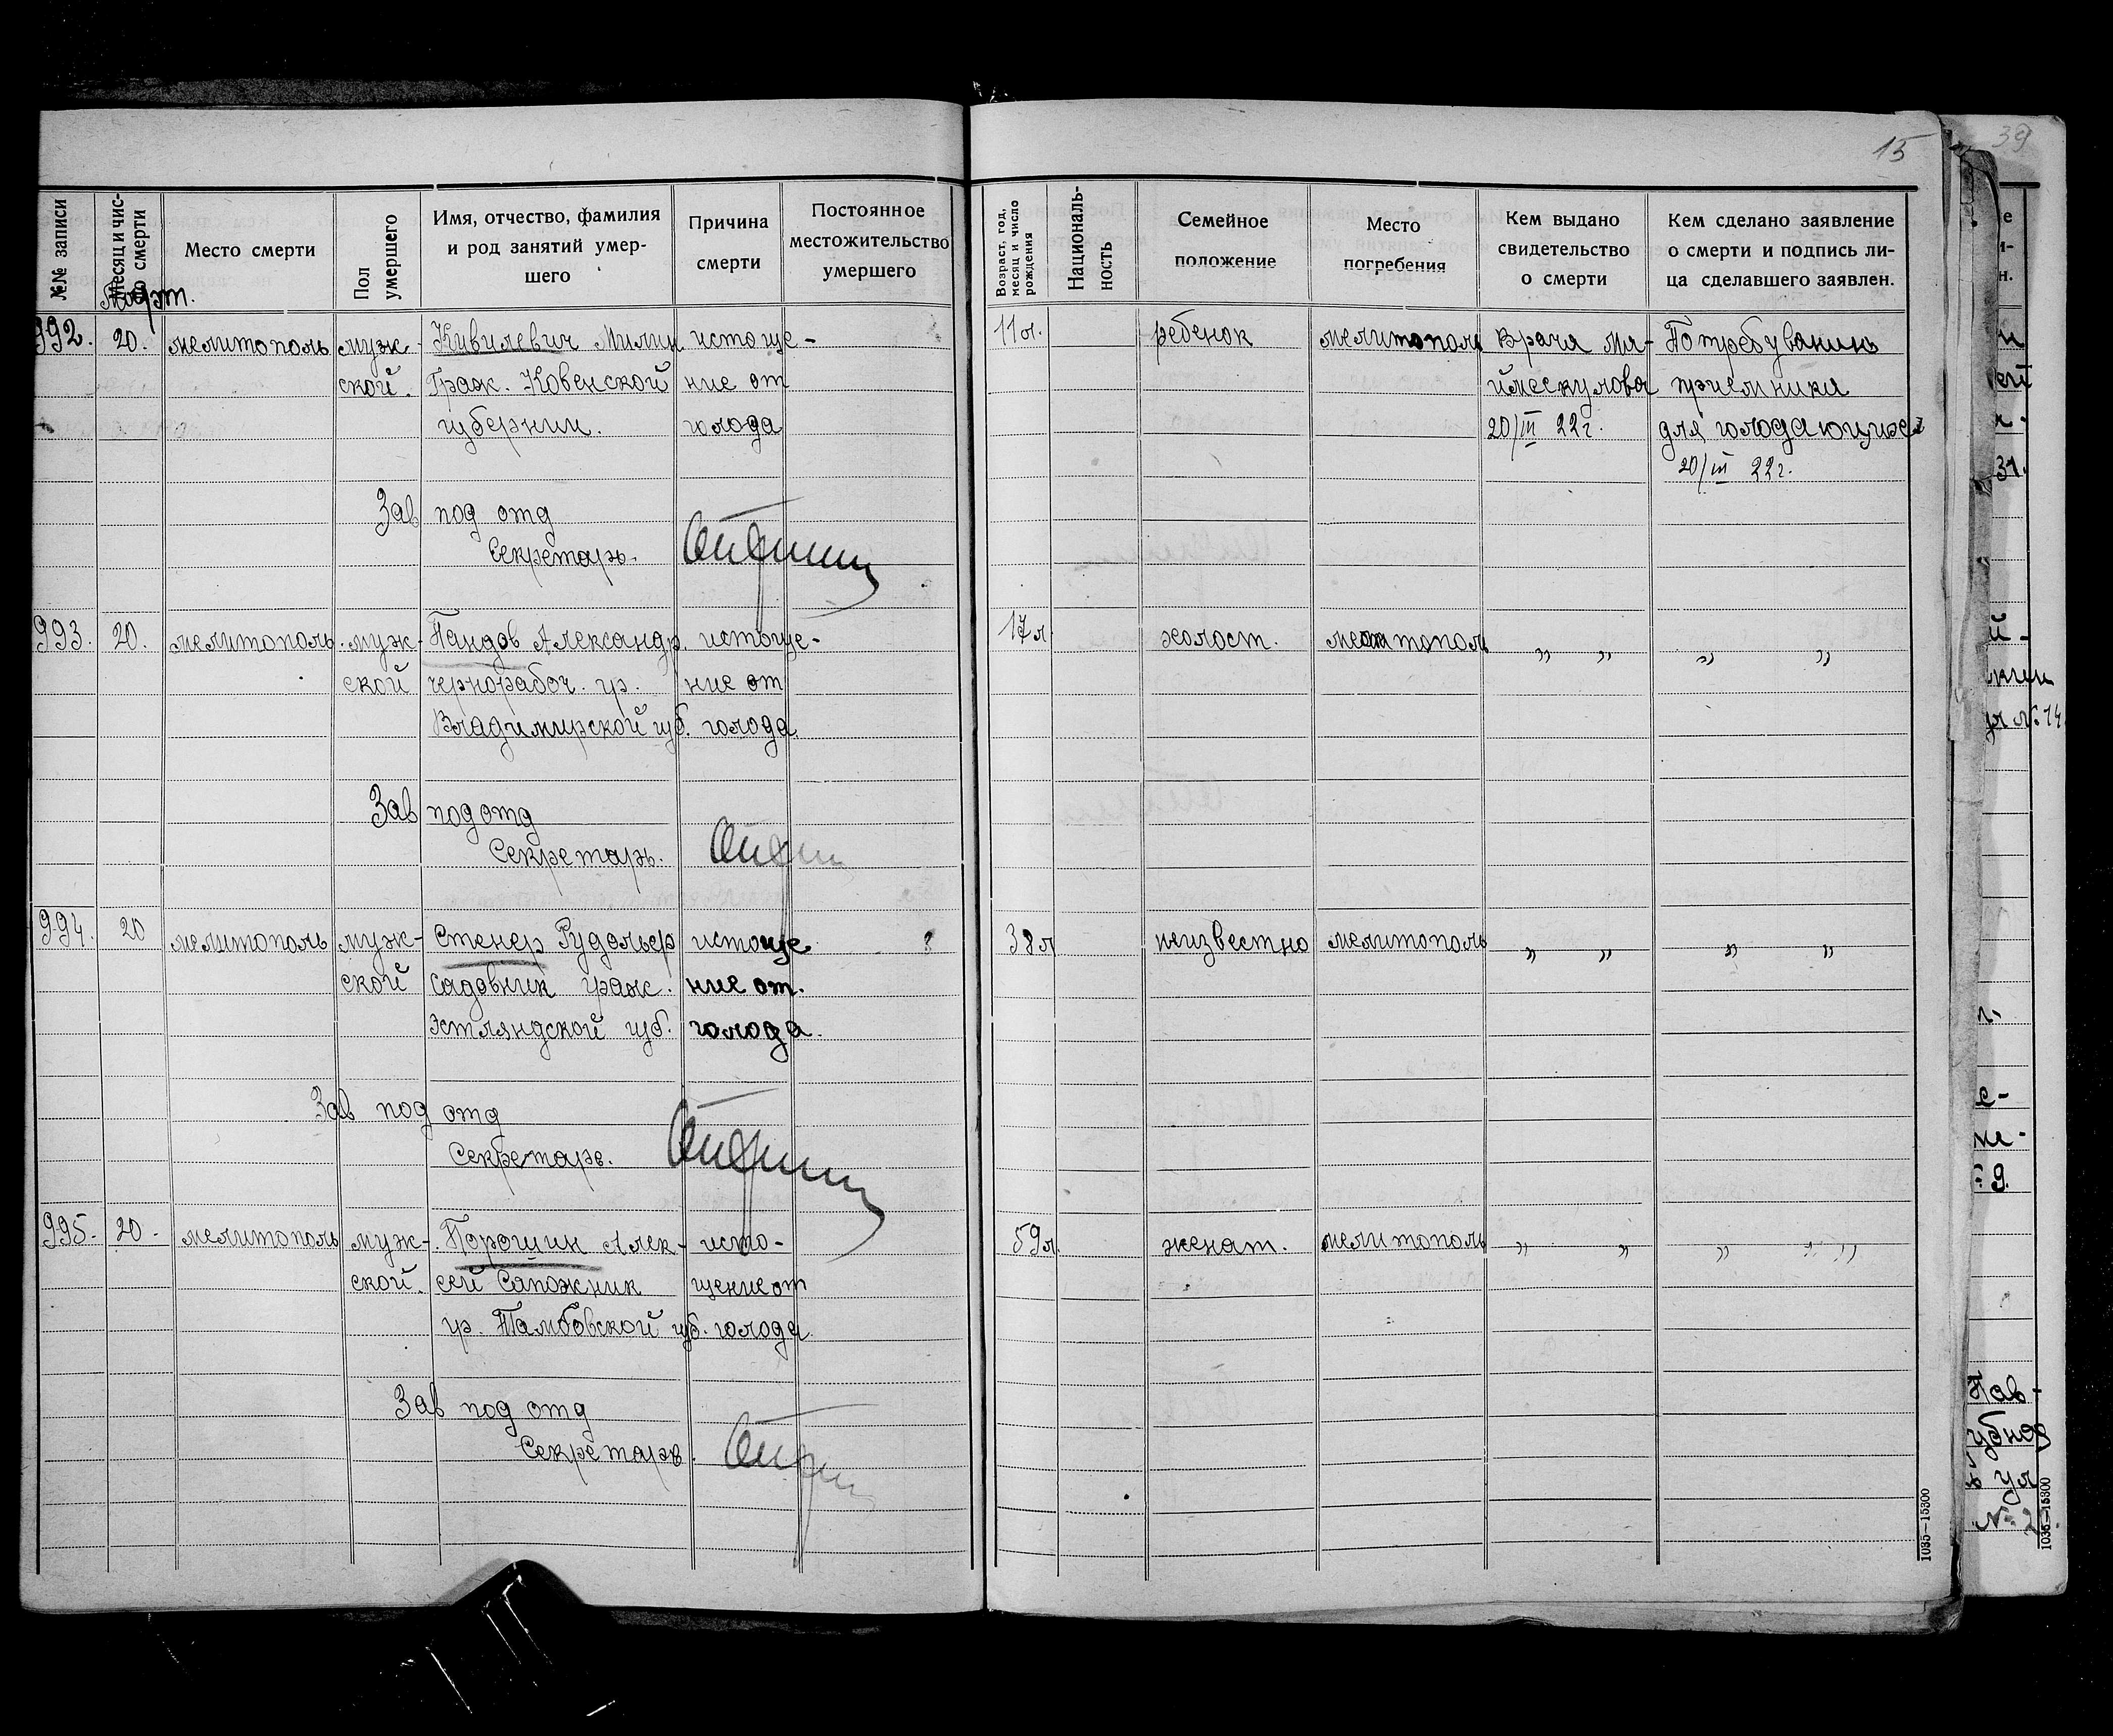 15
39
№№ записи
Месяц и чис-
ло смерти
Место смерти
Пол
умершего
Имя, отчество, фамилия
и род занятий умер-
шего
Причина
смерти
Постоянное
местожительство
умершего
Возраст, год,
месяц и число
рождения
Националь-
ность
Семейное
положение
Место
погребения
Кем выдано
свидетельство
о смерти
Кем сделано заявление
о смерти и подпись ли-
ца сделавшего заявлен.
Март.
992. 20. мелитополь муж- Кивилевич истоще- 11 л. ребенок мелитополь Врача
ской. Граж. Ковенской ние от приемника
губернии. голода 20/III 22 г. для голодающих
20/III 22 г.
Зав под отд
Секретарь.
993. 20. мелитополь. муж- Пандов Александр. истоще- 17 л. холост. мелитополь " " " "
ской чернорабоч. гр. ние от
Владимирской губ. голода.
Зав под отд
Секретарь.
994. 20 мелитополь муж- Стенер Рудольф истоще ? 38 л неизвестно мелитополь " " " "
ской садовник граж. ние от.
Эстляндской губ. голода.
Зав под отд
Секретарь.
995. 20. мелитополь муж-. Порошин Алек- исто- 59 л. женат. мелитополь " " " "
ской. сей Сапожник щение от
гр. Тамбовской губ. голода.
Зав под отд
Секретарь.
1035—15300
1035—15300